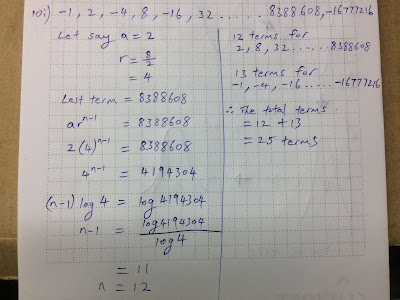 10i) -1, 2, -4, 8, -16, 32 ...... 8388608, -16777216
Let say a = 2
r = 8/2
= 4
Last term = 8388608
ar^(n-1) = 8388608
2(4)^(n-1) = 8388608
4^(n-1) = 4194304
(n-1) log 4 = log 4194304
n-1 = log 4194304 / log 4
= 11
n = 12
12 terms for
2, 8, 32 ...... 8388608
13 terms for
-1, -4, -16 ..... -16777216
∴ The total terms
= 12 + 13
= 25 terms